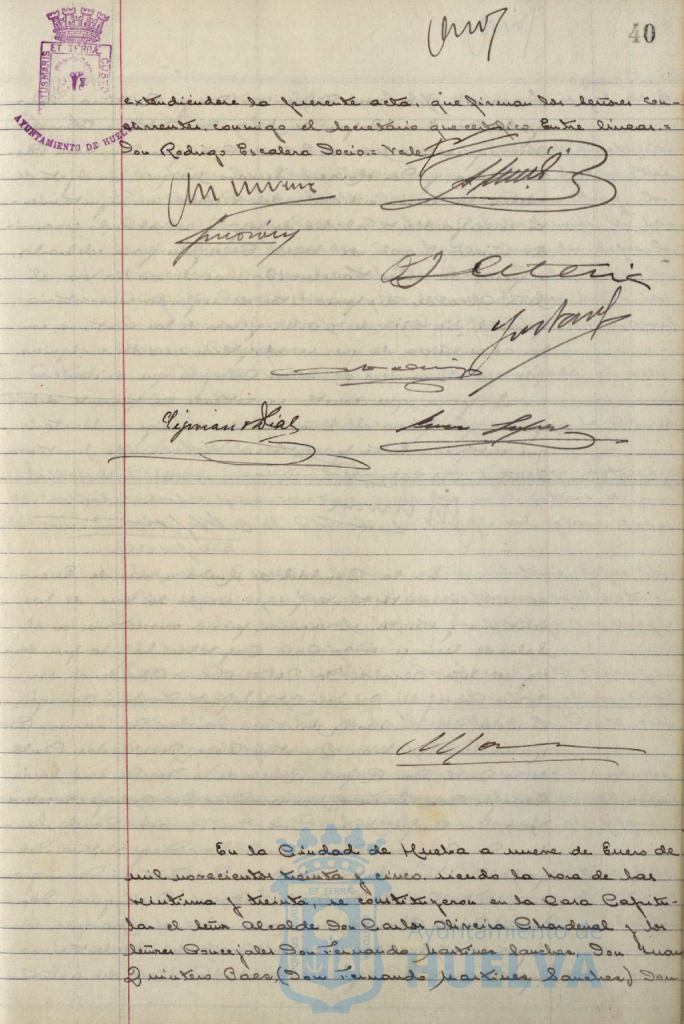 40
PORTUS MARIS ET TERRAE CUSTODIA
AYUNTAMIENTO DE HUELVA
extendiendose la presente acta, que firman los señores con-
currentes, conmigo el Secretario que certifico. Entre lineas.=
Don Rodrigo Escalera Socio.= Vale
Cipriano Diaz
En la Ciudad de Huelva a nueve de Enero de
mil novecientos treinta y cinco, siendo la hora de las
veintiuna y treinta, se constituyeron en la Casa Capitu-
lar el señor Alcalde Don Carlos Oliveira Chardenal y los
señores Concejales Don Fernando Martinez Sanchez, Don Juan
Quintero Baez, (Don Fernando Martinez Sanchez,) Don
Ayuntamiento de
HUELVA